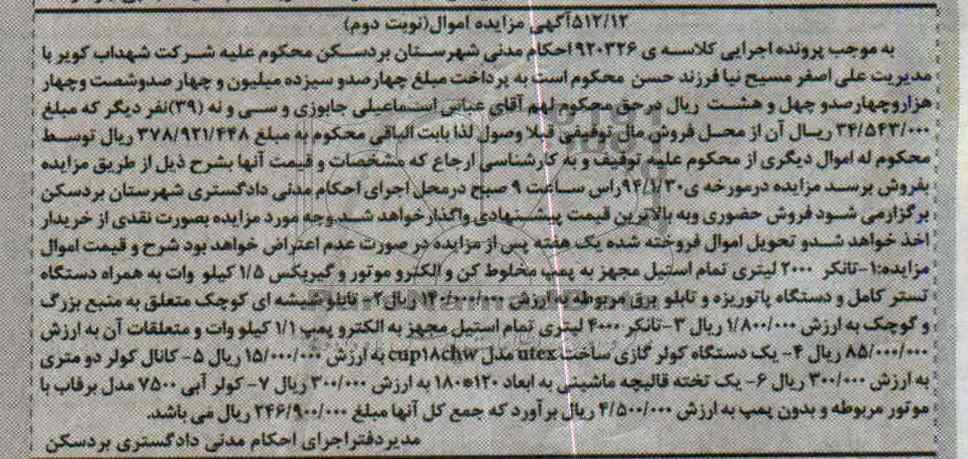 ۵۱۲/۱۲آگهی مزایده اموال(نوبت دوم)
به موجب پرونده اجرایی کلاسه ی ۹۲۰۳۲۶ احکام مدنی شهرستان بردسکن محکوم علیه شرکت شهداب کویر با
مدیریت علی اصغر مسیح نیا فرزند حسن محکوم است به پرداخت مبلغ چهارصدو سیزده میلیون و چهار صدوشصت وچهار
هزاروچهارصدو چهل و هشت ریال درحق محکوم لهم آقای عباس اسماعیلی جابوزی و سی و نه (۳۹)نفر دیگر که مبلغ
۳۴/۵۴۳/۰۰۰ ریال آن از محل فروش مال توقیفی قبلا وصول لذا بابت الباقی محکوم به مبلغ ۳۷۸/۹۲۱/۴۴۸ ریال توسط
محکوم له اموال دیگری از محکوم علیه توقیف و به کارشناسی ارجاع که مشخصات و قیمت آنها بشرح ذیل از طریق مزایده
بفروش برسد مزایده درمورخه ی۹۴/۱/۳۰راس ساعت ۹ صبح درمحل اجرای احکام مدنی دادگستری شهرستان بردسکن
برگزارمی شود فروش حضوری وبه بالاترین قیمت پیشنهادی واگذارخواهد شد.وجه مورد مزایده بصورت نقدی از خریدار
اخذ خواهد شدو تحویل اموال فروخته شده یک هفته پس از مزایده در صورت عدم اعتراض خواهد بود شرح و قیمت اموال
مزایده:۱-تانکر ۲۰۰۰ لیتری تمام استیل مجهز به پمپ مخلوط کن و الکترو موتور و گیربکس ۱/۵ کیلو وات به همراه دستگاه
تستر کامل و دستگاه پاتوریزه و تابلو برق مربوطه به ارزش ۱۴۰/۰۰۰/۰۰۰ ریال ۲- تابلو شیشه ای کوچک متعلق به منبع بزرگ
و کوچک به ارزش ۱/۸۰۰/۰۰۰ ریال ۳-تانکر ۴۰۰۰ لیتری تمام استیل مجهز به الکترو پمپ ۱/۱ کیلو وات و متعلقات آن به ارزش
۸۵/۰۰۰/۰۰۰ ریال ۴- یک دستگاه کولر گازی ساخت utex مدل cup۱۸chw به ارزش ۱۵/۰۰۰/۰۰۰ ریال ۵- کانال کولر دو متری
به ارزش ۳۰۰/۰۰۰ ریال ۶- یک تخته قالیچه ماشینی به ابعاد ۱۲۰*۱۸۰ به ارزش ۳۰۰/۰۰۰ ریال ۷- کولر آبی ۷۵۰۰ مدل برفاب با
موتور مربوطه و بدون پمپ به ارزش ۴/۵۰۰/۰۰۰ ریال برآورد که جمع کل آنها مبلغ ۲۴۶/۹۰۰/۰۰۰ ریال می باشد.
مدیردفتراجرای احکام مدنی دادگستری بردسکن